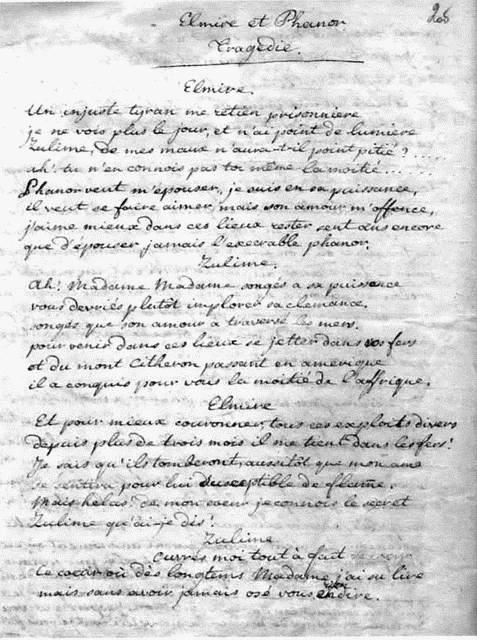 Elmire et Phanor 26
Tragedie.
Elmire.
Un injuste tyran me retien prisonniere
je ne vois plus le jour, et n'ai point de lumiere
Zulime, de mes maux n'aura-t-il point pitié ? .....
ah! tu n'en connois pas toi même la moitié ....
Phanor veut m'epouser, je suis en sa puissance,
il veut se faire aimer, mais son amour m'offence,
j'aime mieux dans ces lieux rester sent ans encore
que d'epouser jamais l'execrable phanor.
Zulime.
Ah! Madame Madame songés a sa puissence
vous devriés plutôt implorer sa clemance.
songés que son amour a traversé les mers.
pour venir dans ces lieux se jetter dans vos fers
et du mont Citheron passant en amerique
il a conquis pour vous la moitié de l'affrique.
Elmire
Et pour mieux couronner, tous ces exploits divers
depuis plus de trois mois il me tient dans les fers!
Je sais qu'ils tomberont, aussitôt que mon ame
se sentira pour lui susceptible de flame.
Mais helas! de mon coeur je connois le secret
Zulime qu'ai-je dis!
Zulime
ouvrés moi tout à fait
Ce coeur où dès longtems Madame j'ai su lire
mais sans avoir jamais osé vous dire.